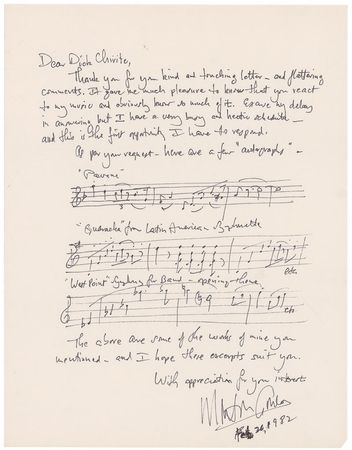 Dear Dick
Thank you for your kind and touching letter – and flattering
comments. It gave me much pleasure to know that you react
to my music and obviously know so much of it. Excuse my delay
in answering but I have a very busy and hectic schedule –
and this is the first opportunity I have to respond.
As per your request – here are a few "autographs" –
"Pavane"
3
"Guaracha" from Latin American Symphonette
etc.
"West Point" Symphony for Band – opening theme
etc.
The above are some of the works of mine you
mentioned – and I hope these excerpts suit you.
With appreciation for your interest
Morton Gould
1982